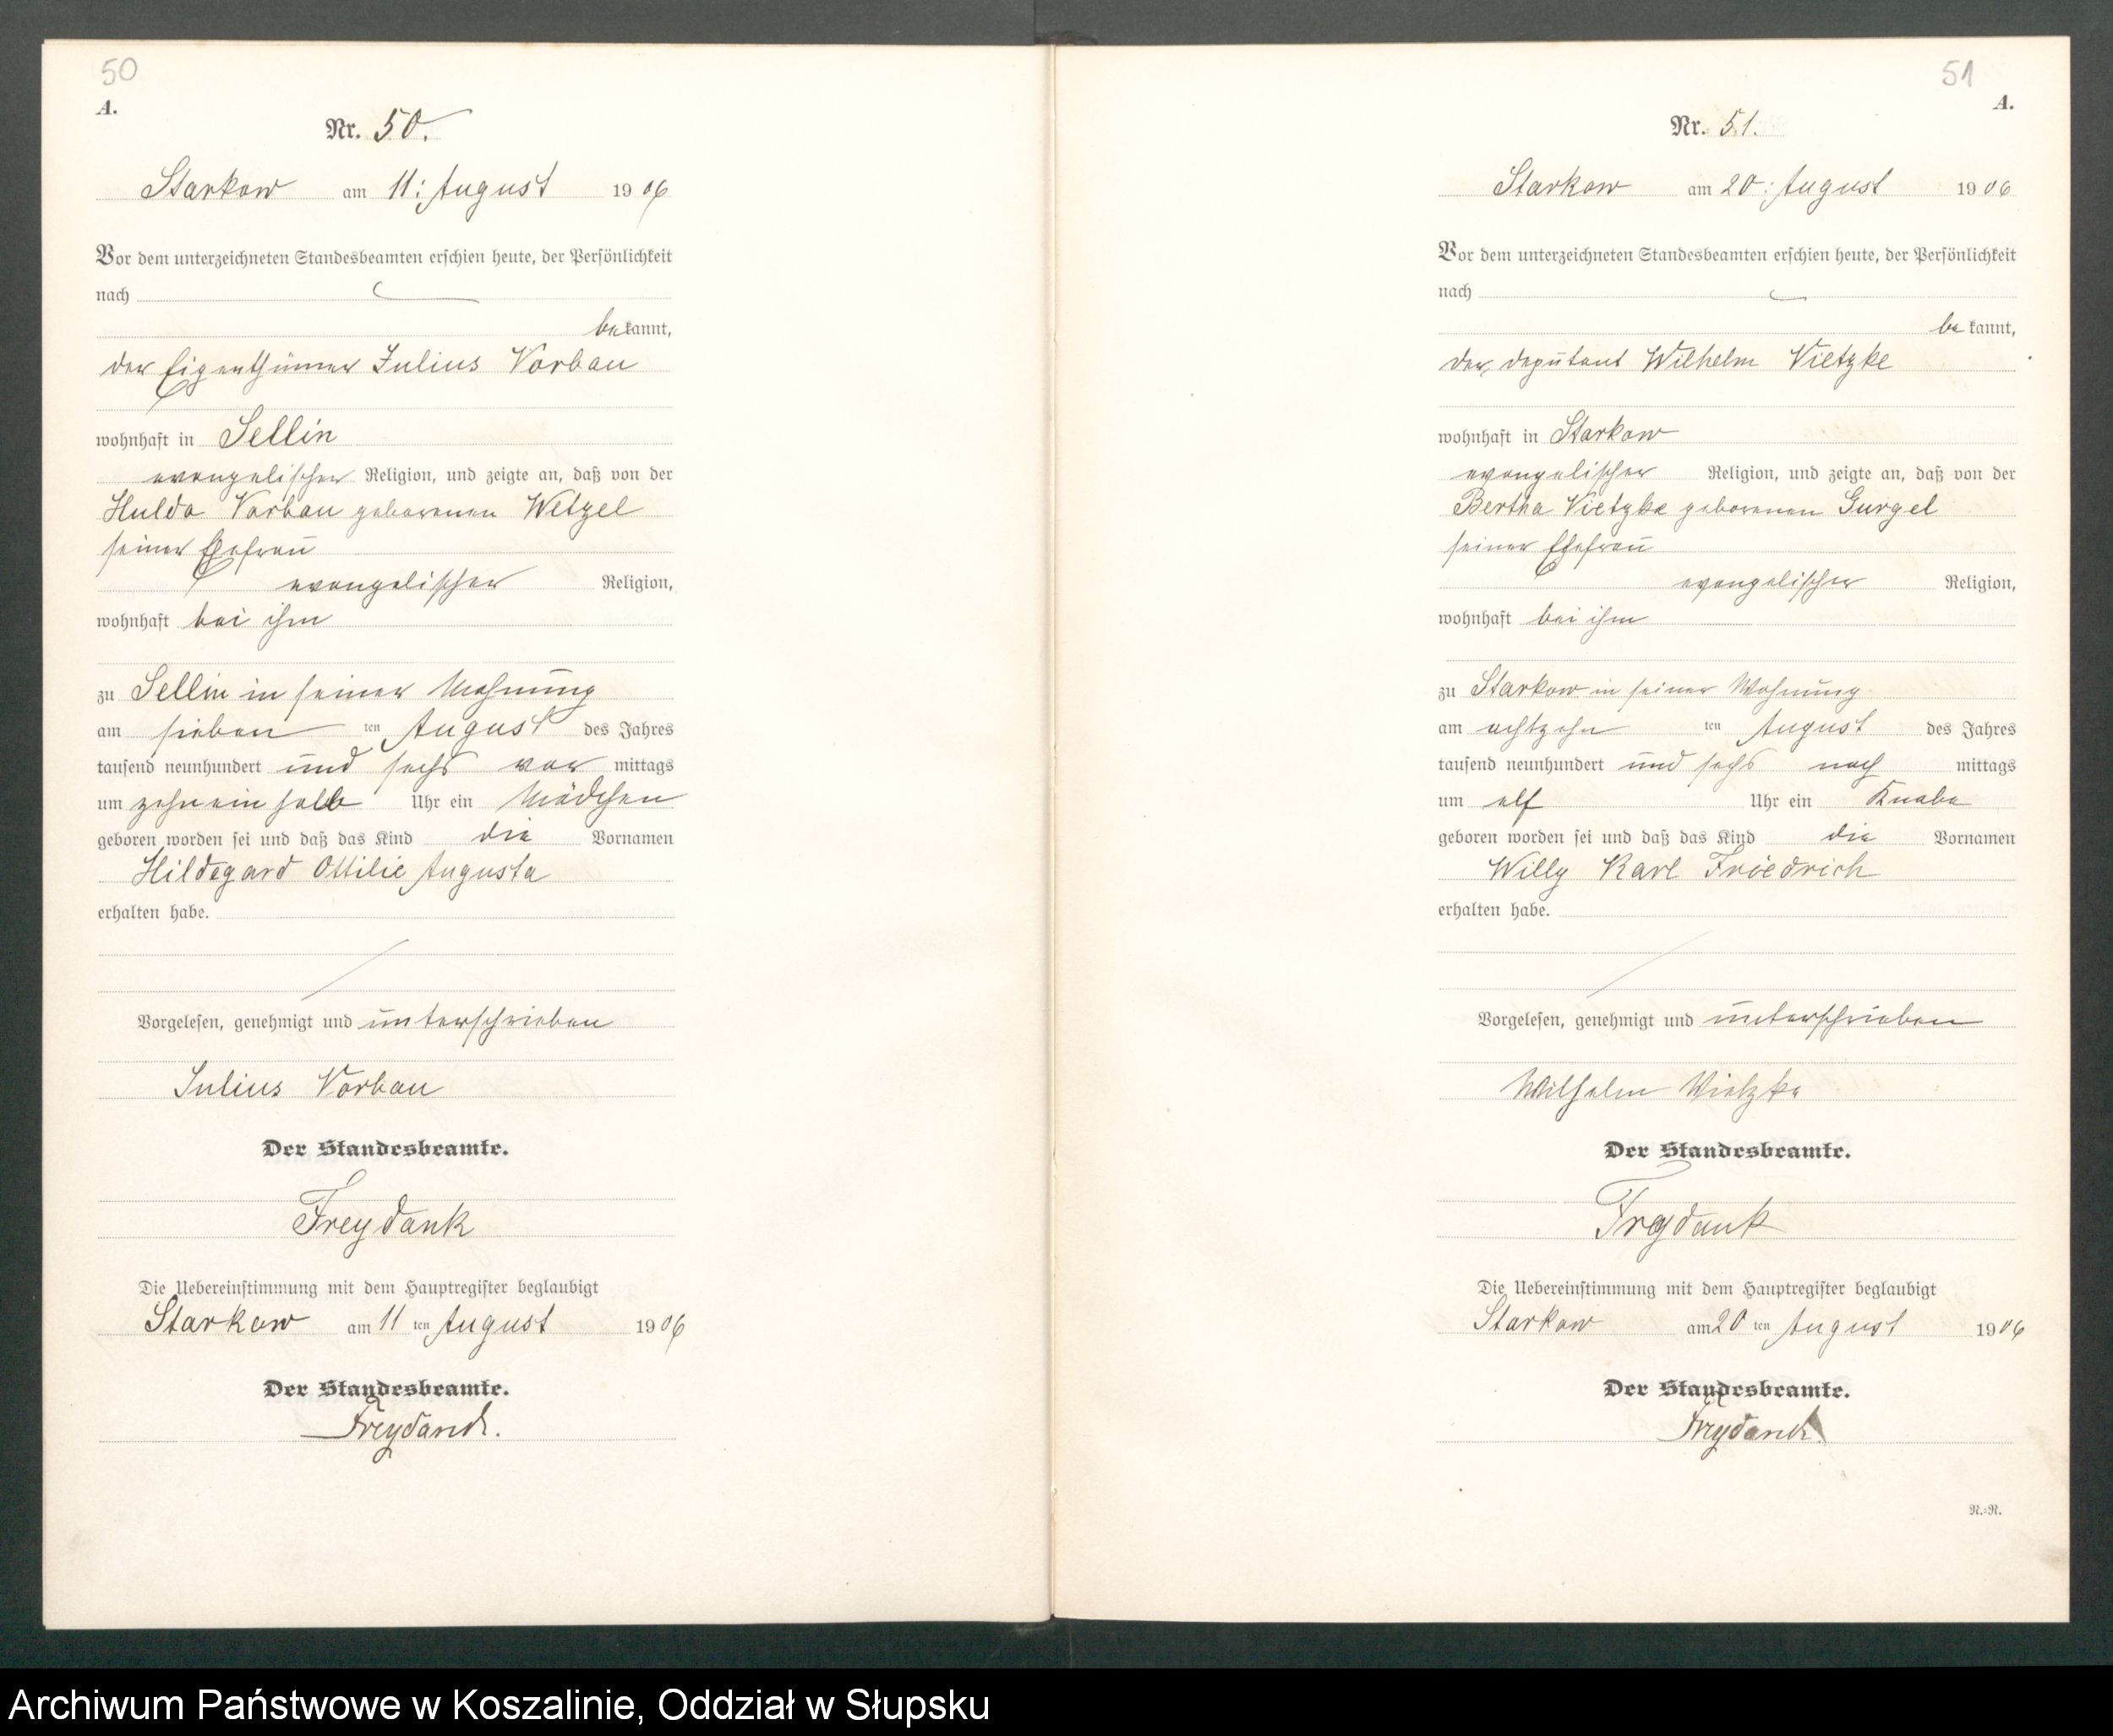 50
A.
Nr. 50.
Starkow am 11: August 1906
Vor dem unterzeichneten Standesbeamten erschien heute, der Persönlichkeit
nach
bekannt,
der Eigenthümer Julius Vorbau
wohnhaft in Sellin
evangelischer Religion, und zeigte an, daß von der
Hulda Vorbau geborenen Wetzel
seiner Ehefrau
evangelischer Religion,
wohnhaft bei ihm
zu Sellin in seiner Wohnung
am sieben ten August des Jahres
tausend neunhundert und sechs vor mittags
um zehn ein halb Uhr ein Mädchen
geboren worden sei und daß das Kind die Vornamen
Hildegard Ottilie Augusta
erhalten habe.
Vorgelesen, genehmigt und unterschrieben
Julius Vorbau
Der Standesbeamte.
Freydank
Die Uebereinstimmung mit dem Hauptregister beglaubigt
Starkow am 11 ten August 1906
Der Standesbeamte.
Freydank.
51
A.
Nr. 51.
Starkow am 20: August 1906
Vor dem unterzeichneten Standesbeamten erschien heute, der Persönlichkeit
nach
bekannt,
der, deputant Wilhelm Vietzke
wohnhaft in Starkow
evangelischer Religion, und zeigte an, daß von der
Bertha Vietzke geborenen Gurgel
seiner Ehefrau
evangelischer Religion,
wohnhaft bei ihm
zu Starkow in seiner Wohnung
am achtzehn ten August des Jahres
tausend neunhundert und sechs nach mittags
um elf Uhr ein Knabe
geboren worden sei und daß das Kind die Vornamen
Willy Karl Friedrich
erhalten habe.
Vorgelesen, genehmigt und unterschrieben
Wilhelm Vietzke
Der Standesbeamte.
Freydank
Die Uebereinstimmung mit dem Hauptregister beglaubigt
Starkow am 20 ten August 1906
Der Standesbeamte.
Freydank.
R.=R.
Archiwum Państwowe w Koszalinie, Oddział w Słupsku